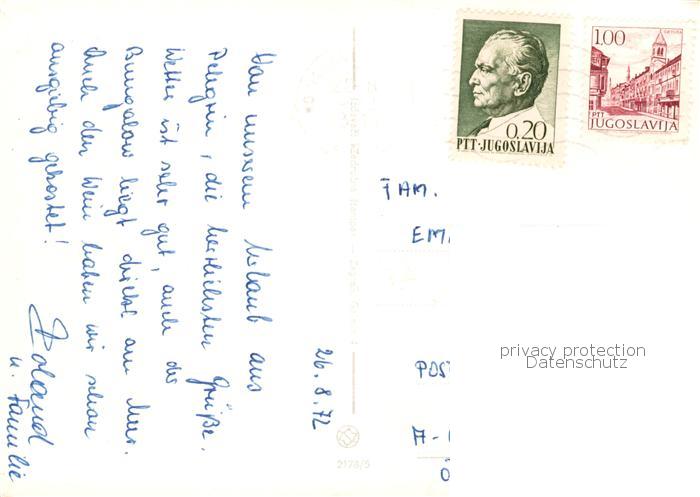 26.8.72
Von unserem Urlaub aus
Pelegrin, die herzlichsten Grüße.
Wetter ist sehr gut, auch der
Bungalow liegt direkt am Meer.
Auch den Wein haben wir schon
ausgiebig gekostet!
Roland
u. Familie
0.20
PTT·JUGOSLAVIJA
1.00
PTT
JUGOSLAVIJA
FAM.
EM
POS
A-
privacy protection
Datenschutz
2178/5